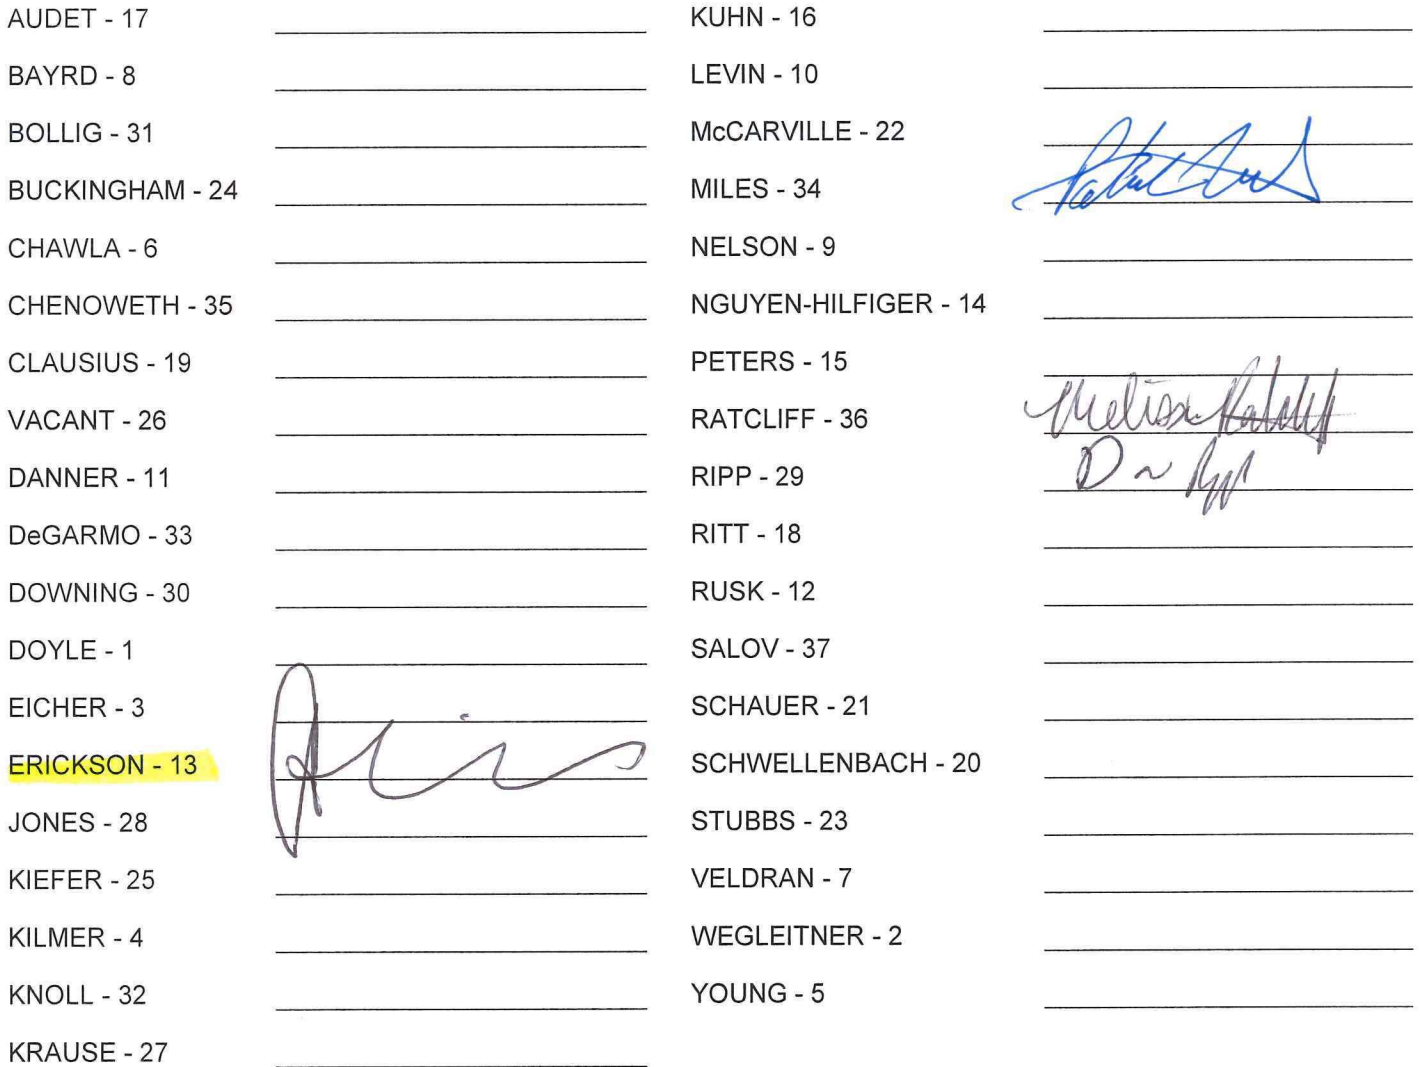 AUDET - 17
BAYRD - 8
BOLLIG - 31
BUCKINGHAM - 24
CHAWLA - 6
CHENOWETH - 35
CLAUSIUS - 19
VACANT - 26
DANNER - 11
DeGARMO - 33
DOWNING - 30
DOYLE - 1
EICHER - 3
ERICKSON - 13
JONES - 28
KIEFER - 25
KILMER - 4
KNOLL - 32
KRAUSE - 27
KUHN - 16
LEVIN - 10
McCARVILLE - 22
MILES - 34
NELSON - 9
NGUYEN-HILFIGER - 14
PETERS - 15
RATCLIFF - 36 Melissa Ratcliff
RIPP - 29
RITT - 18
RUSK - 12
SALOV - 37
SCHAUER - 21
SCHWELLENBACH - 20
STUBBS - 23
VELDRAN - 7
WEGLEITNER - 2
YOUNG - 5